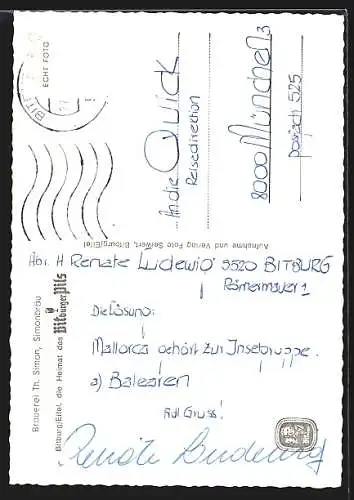 Brauerei Th. Simon, Simonbräu
Bitburg/Eifel, die Heimat des Bitburger Pils
ECHT FOTO
Aufnahme und Verlag Foto Seiwert, Bitburg/Eifel
An die QUICK
Reisedirektion
8000 München 3
Postfach 525
Abs. H Renate Ludewig 5520 BITBURG
Römermauer 1
Die Lösung:
Mallorca gehört zur Inselgruppe.
a) Balearen
Auf Gruss!
Renate Ludewig